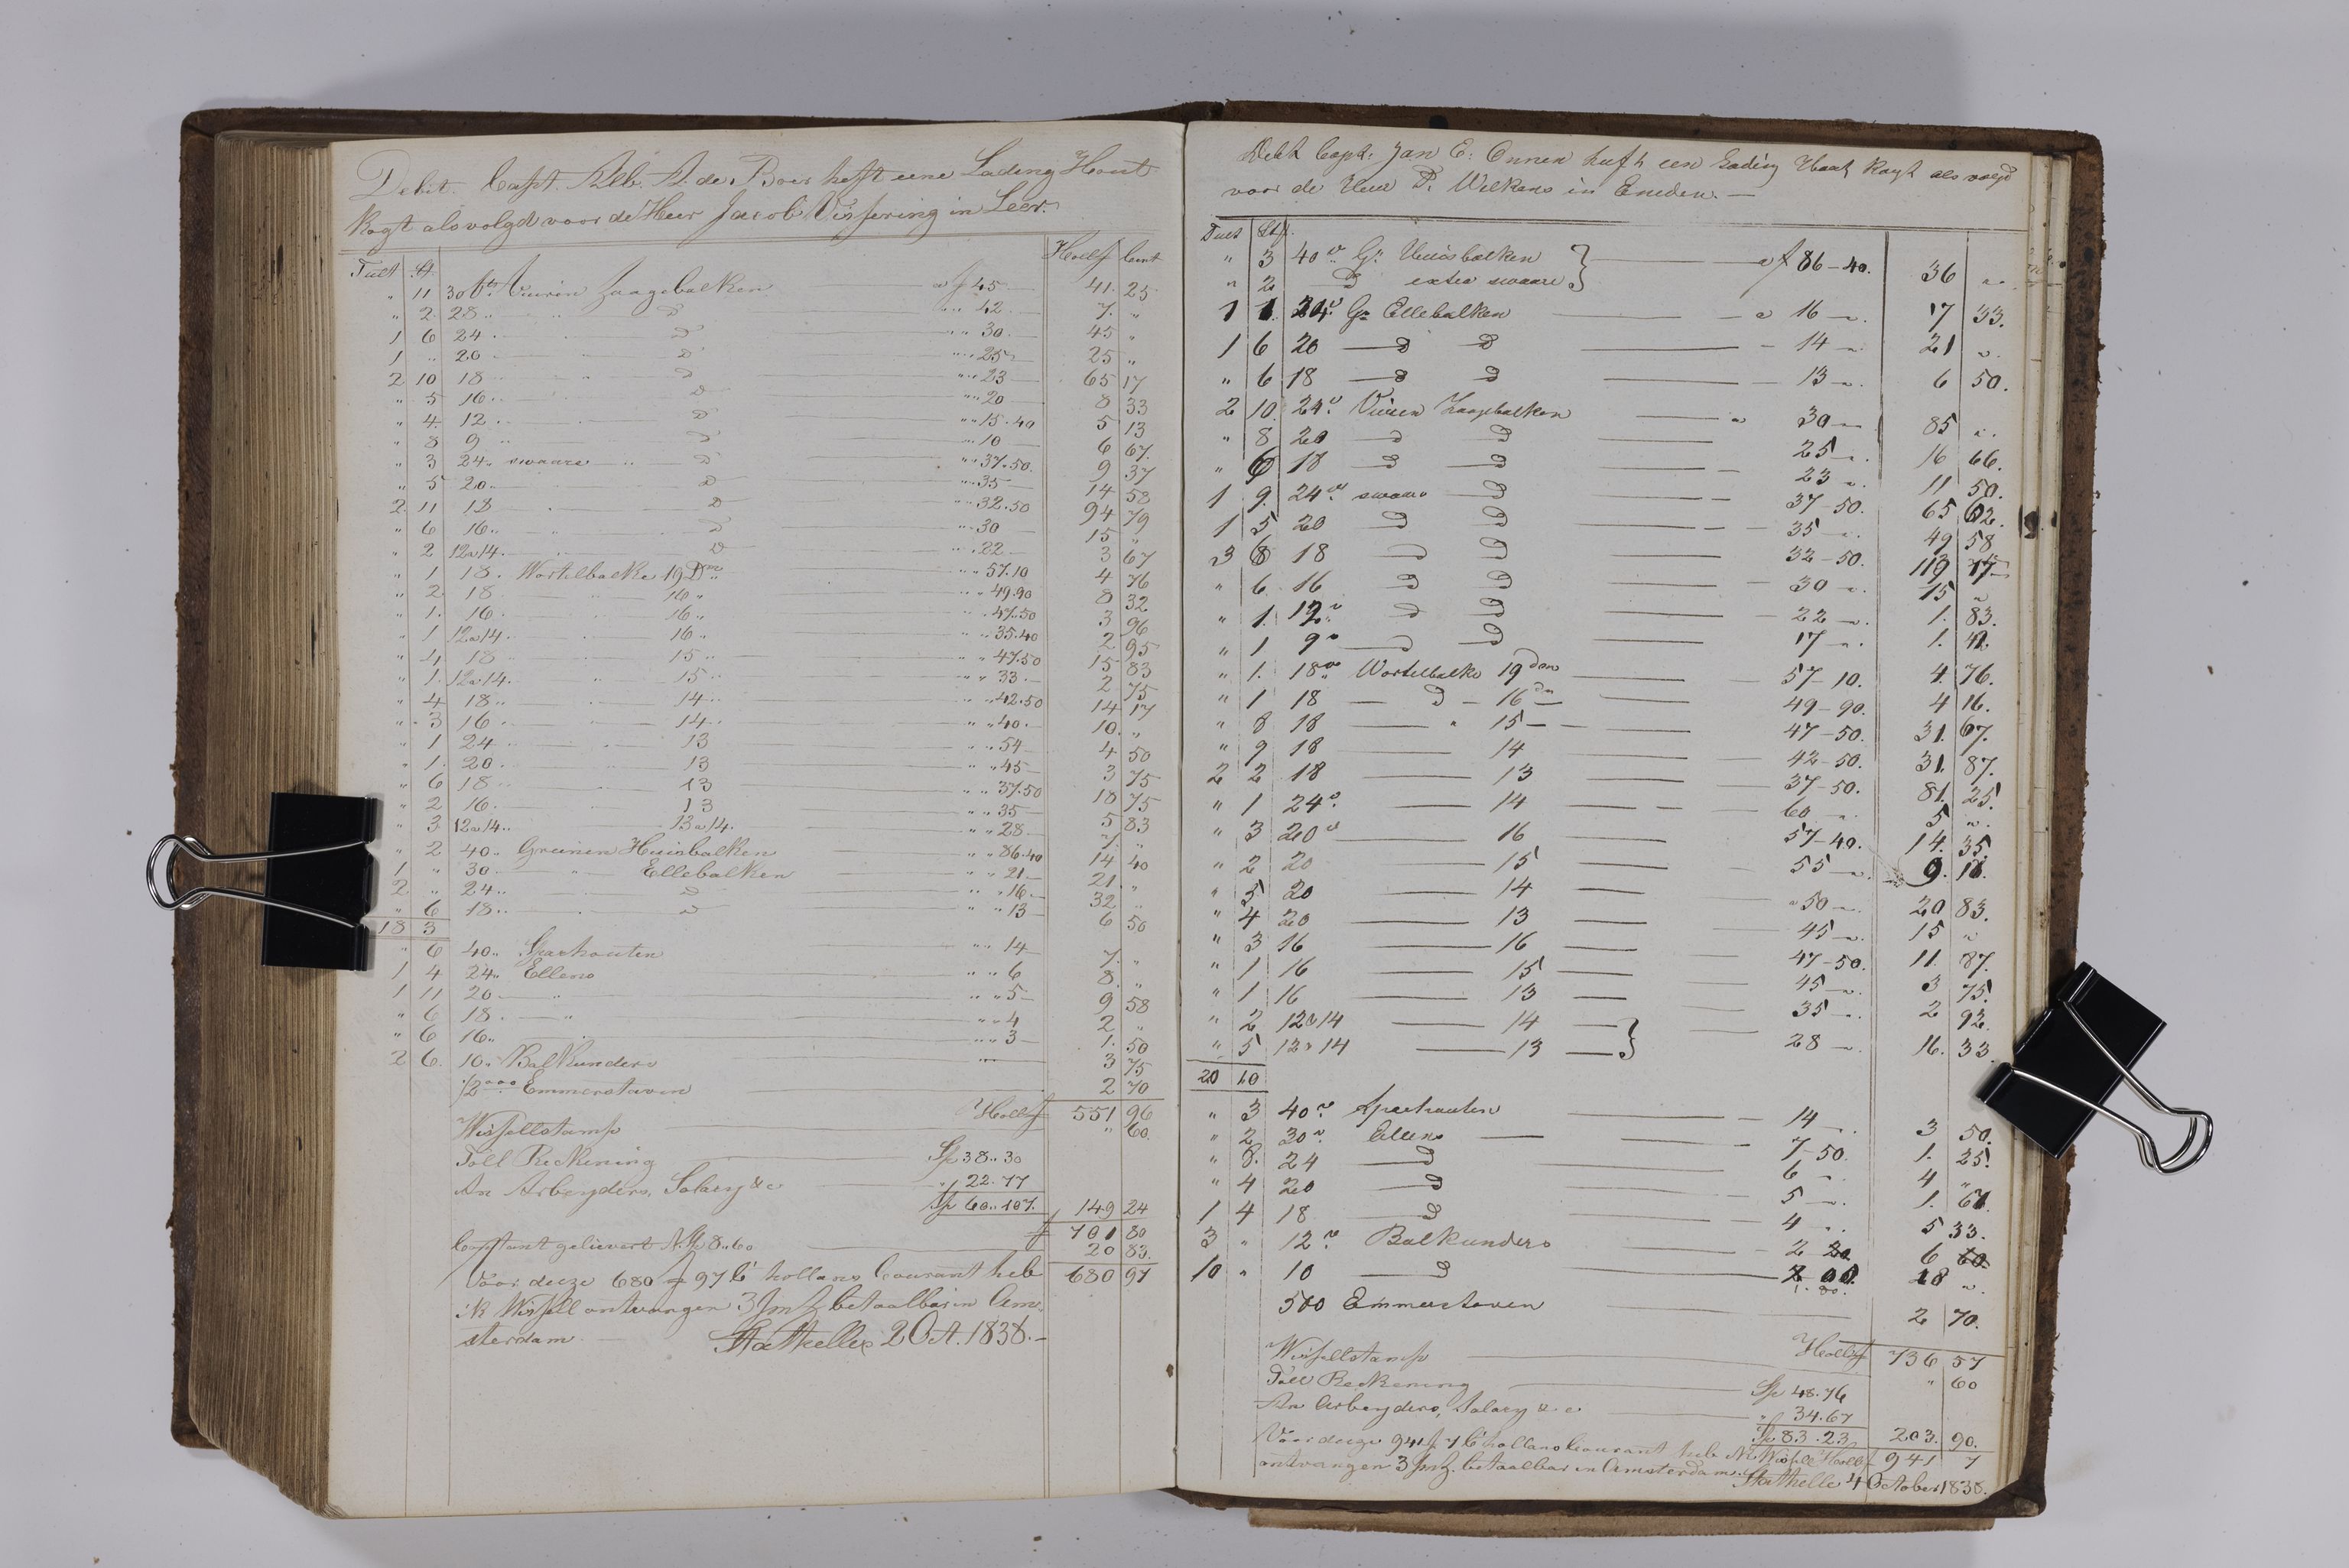 Debit. Capt. Alb. A. de Boer heft eene Lading Hout
Kogt als volgd voor de Heer Jacob Vissering in Leer.
Tult St. Hollf Cent
" 11 30 Vuuren Zaagebalken a f 45 41. 25
" 2 28 " D " 42 7. "
1 6 24 D " 30 45 "
1 " 20 D " 25 25 "
2 10 18 D " 23 65 17
" 5 16 D " 20 8 33
" 4 12 D " 15.40 5 13
" 8 9 D " 10 6 67.
" 3 24 swaare D " 37.50. 9 37
" 5 20 D " 35 14 58
2 11 18 D " 32.50 94 79
" 6 16 D " 30 15 "
" 2 12 a 14 D " 22 3 67
" 1 18. Wortelbalke 19 Dm " 57.10 4 76
" 2 18 16 " " 49.90 8 32
" 1. 16 16 " " 47.50 3 96
" 1 12 a 14. 16 " " 35.40 2 95
" 4 18 15 " " 47.50 15 83
" 1. 12 a 14. 15 " " 33 2 75
" 4 18 14 " " 42.50 14 17
" 3 16 14 " " 40. 10. "
" 1 24 13 " " 54 4 50
" 1. 20 13 " " 45 3 75
" 6 18 13 " " 37.50 18 75
" 2 16 13 " " 35 5 83
" 3 12 a 14 13 a 14. " " 28 7. "
" 2 40 Greinen Huisbalken " " 86.40 14 40
1 " 30 " Ellebalken " " 21 21 "
2 " 24 D " " 16 32 "
" 6 18 D " " 13 6 50
18 3
" 6 40 Sparhouten " " 14 7. "
1 4 24 Ellens " " 6 8. "
1 11 20 " " " 5 9 58
" 6 18 " " " 4 2 "
" 6 16 " " 3 1. 50
2 6. 10 Balkunders 3 75
Emmerstaven 2 70
Hollf 551 96
Wissellstamp " 60.
Toll Reckening Sp 38.. 30
An Arbeyders, Salary &c " 22. 77
Sp 60.. 107. 149 24
f 701 80
Contant gelievert N. Sp 8..60 20 83.
Voor deeze 680 f 97 C hollans Courant heb 680 97
ik Wissell ontvangen 3 Mt betaalbar in Am-
sterdam. Stathelle 2 Oct. 1838.
Debit Capt: Jan E: Onnen heft een Lading Haut Kogt als volgd
voor de Heer D. Wilkens in Emden. —
Tult St.
" 3 40 Gr: Huisbalken a f 86-40. 36 "
" 2 D extra swaare
1 1 24 Gr Ellebalken a 16 17 33.
1 6 20 D D 14 21 "
" 6 18 D D 13 6 50.
2 10. 24 Vuiren Zaagebalken " 30 85 "
" 8 20 D D 25 16 66.
" 6 18 D D 23 11 50.
1 9. 24 swaare D 37-50. 65 62.
1 5 20 D D 35 49 58
3 8 18 D D 32-50. 119 17
" 6 16 D D 30 15 "
" 1. 12 D D 22 1. 83.
" 1 9 D D 17 1. 42.
" 1. 18 Wortelbalke 19 dm 57-10. 4. 76.
" 1 18 D 16 dm 49-90. 4 16.
" 8 18 " 15 47-50. 31. 67.
" 9 18 14 42-50. 31. 87.
2 2 18 13 37-50. 81. 25.
" 1 24 14 60 5 "
" 3 20 16 57-40. 14. 35.
" 2 20 15 55 9. 16.
" 5 20 14 50 20 83.
" 4 20 13 45 15 "
" 3 16 16 47-50. 11. 87.
" 1 16 15 45 3 75.
" 1 16 13 35 2 92.
" 2 12 a 14 14
" 5 12 a 14 13 28 16. 33.
20 10
" 3 40 Sparhouten 14 3 50.
" 2 30 Ellens 7-50. 1. 25.
" 8. 24 D 6 4 "
" 4 20 D 5 1. 67.
1 4 18 D 4 5 33.
3 " 12 Balkunders 2 20 6 60
10 " 10 D 1. 80. 18 "
500 Emmerstaven 2 70.
Hollf 736 57
Wissellstamp " 60
Toll Reckening Sp 48.76
An Arbeyders, Salary &c " 34.67
Sp 83.23 203. 90.
Voor deeze 941 f 7 C hollans Courant heb ik Wissell Hollf 941 7
ontvangen 3 Mt. betaalbar in Amsterdam. Stathelle 4 October 1838.